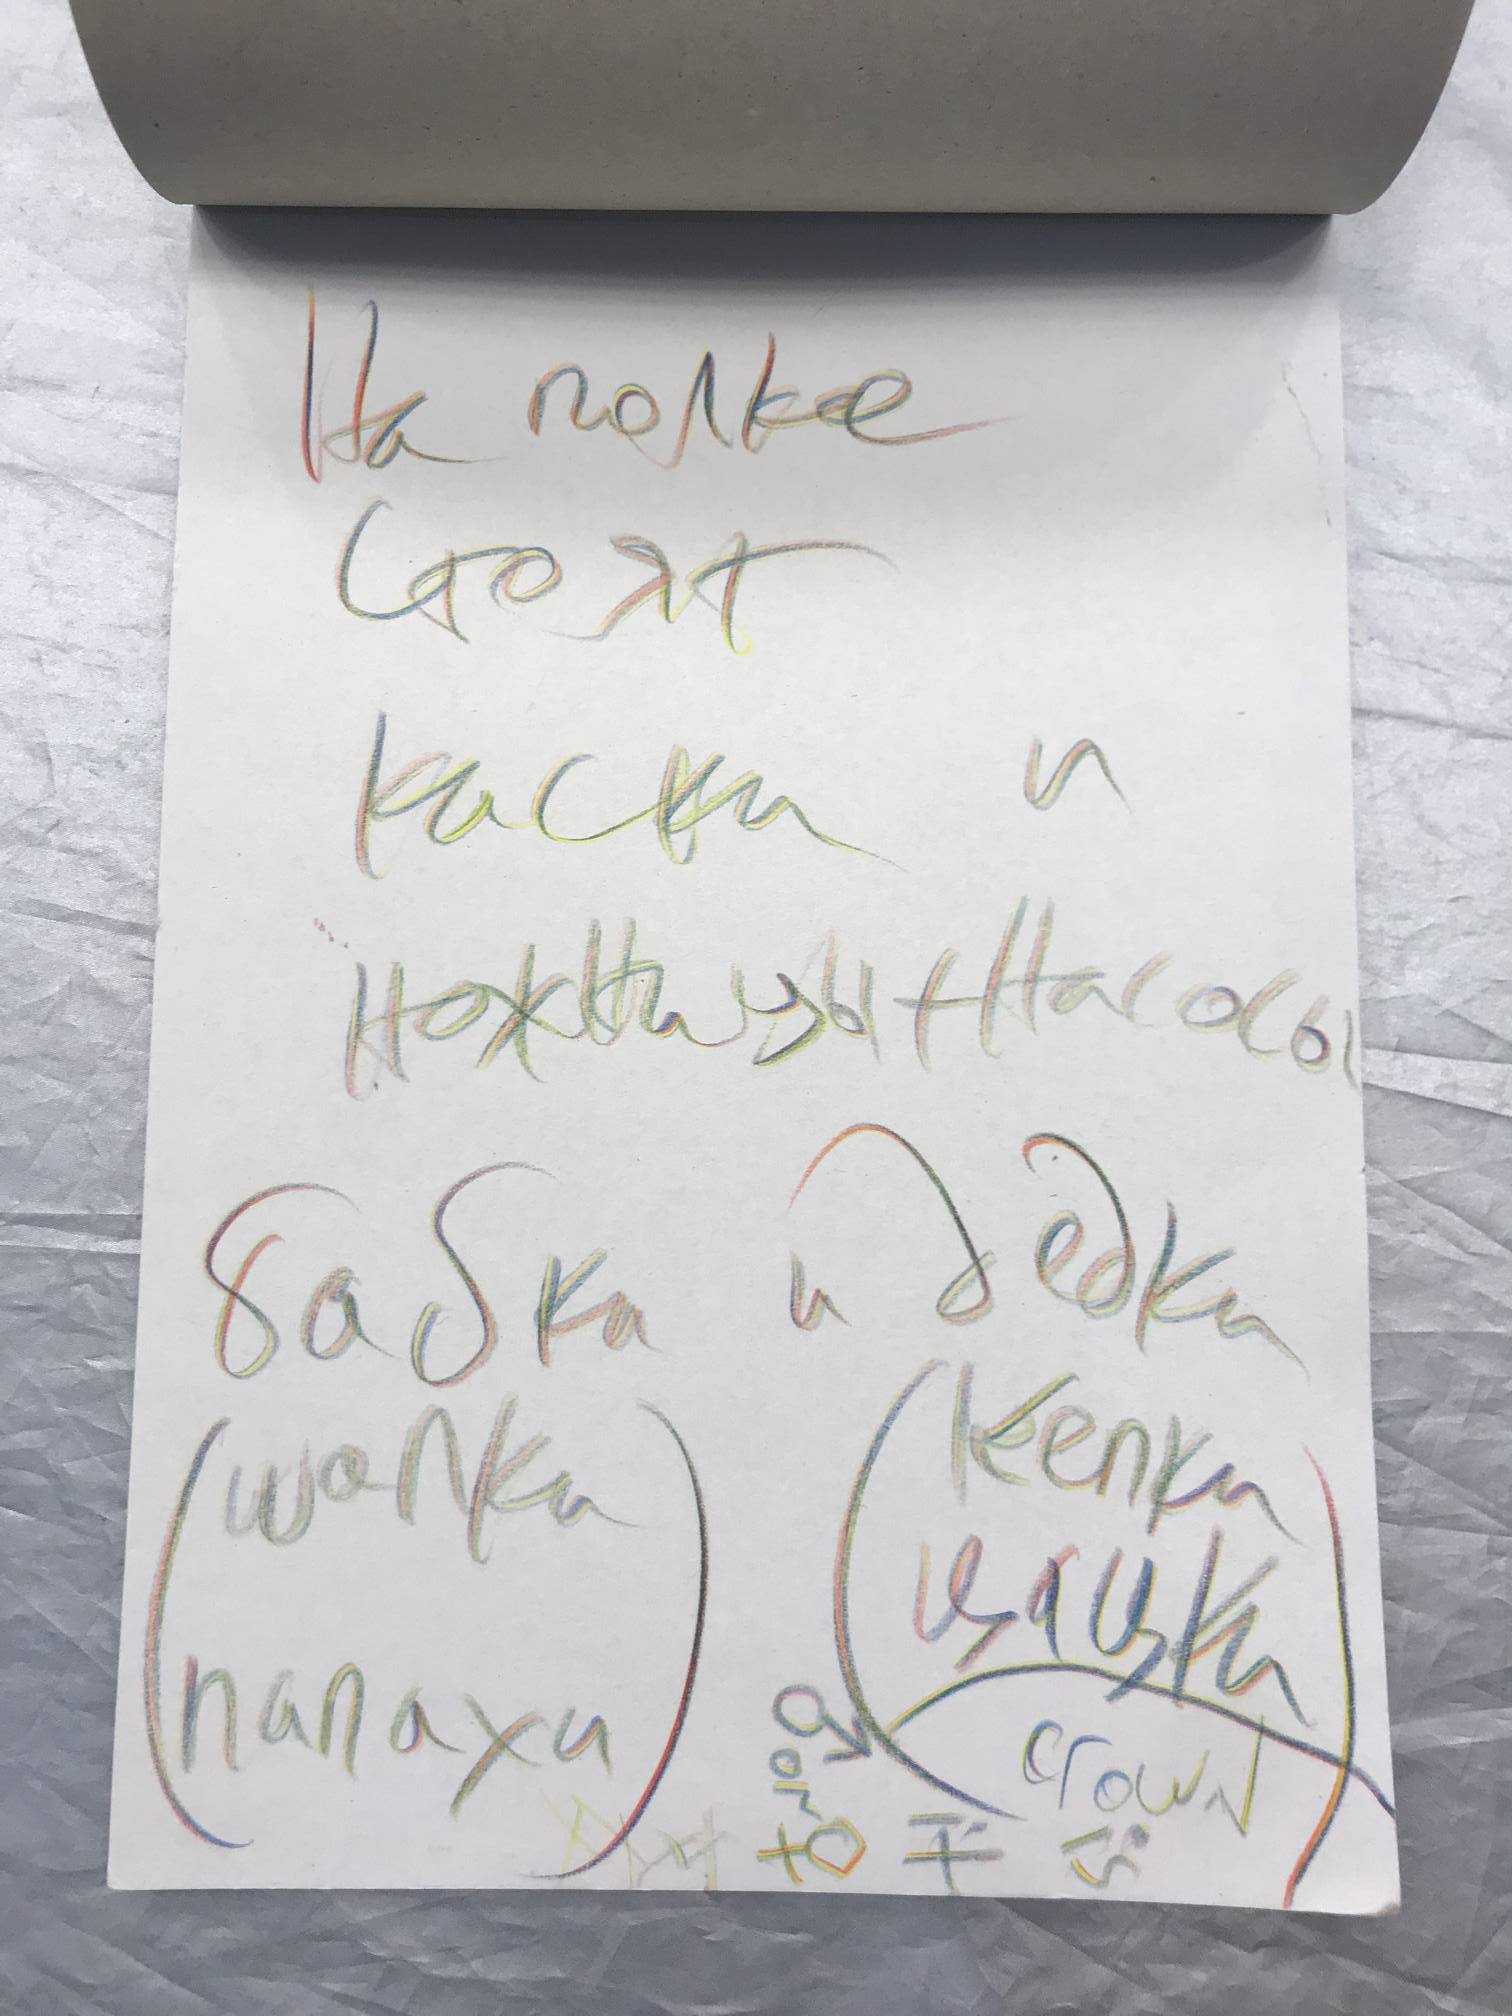 На полке
стоят
каски и
ножницы + Насосы
бабки и дедки
(шапки
папахи)
(кепки
цацки
crown)